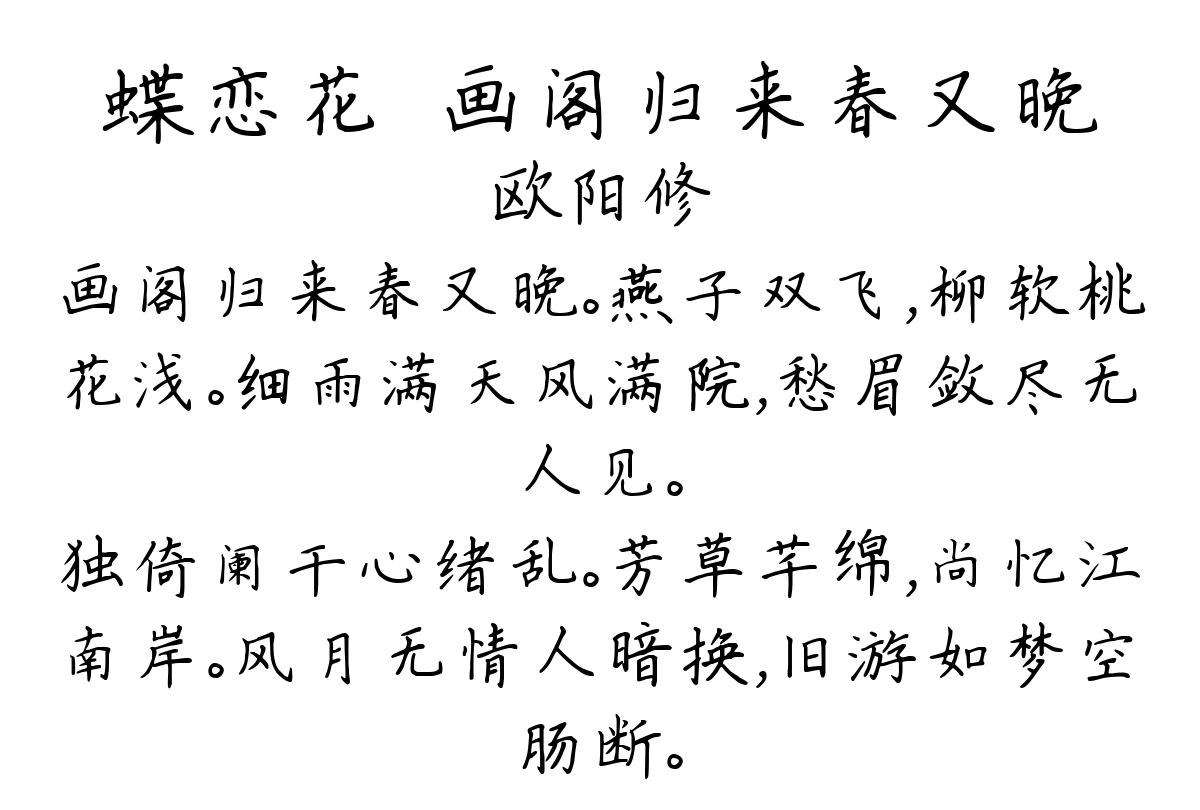 蝶恋花 画阁归来春又晚
欧阳修
画阁归来春又晚。燕子双飞,柳软桃
花浅。细雨满天风满院,愁眉敛尽无
人见。
独倚阑干心绪乱。芳草芊绵,尚忆江
南岸。风月无情人暗换,旧游如梦空
肠断。